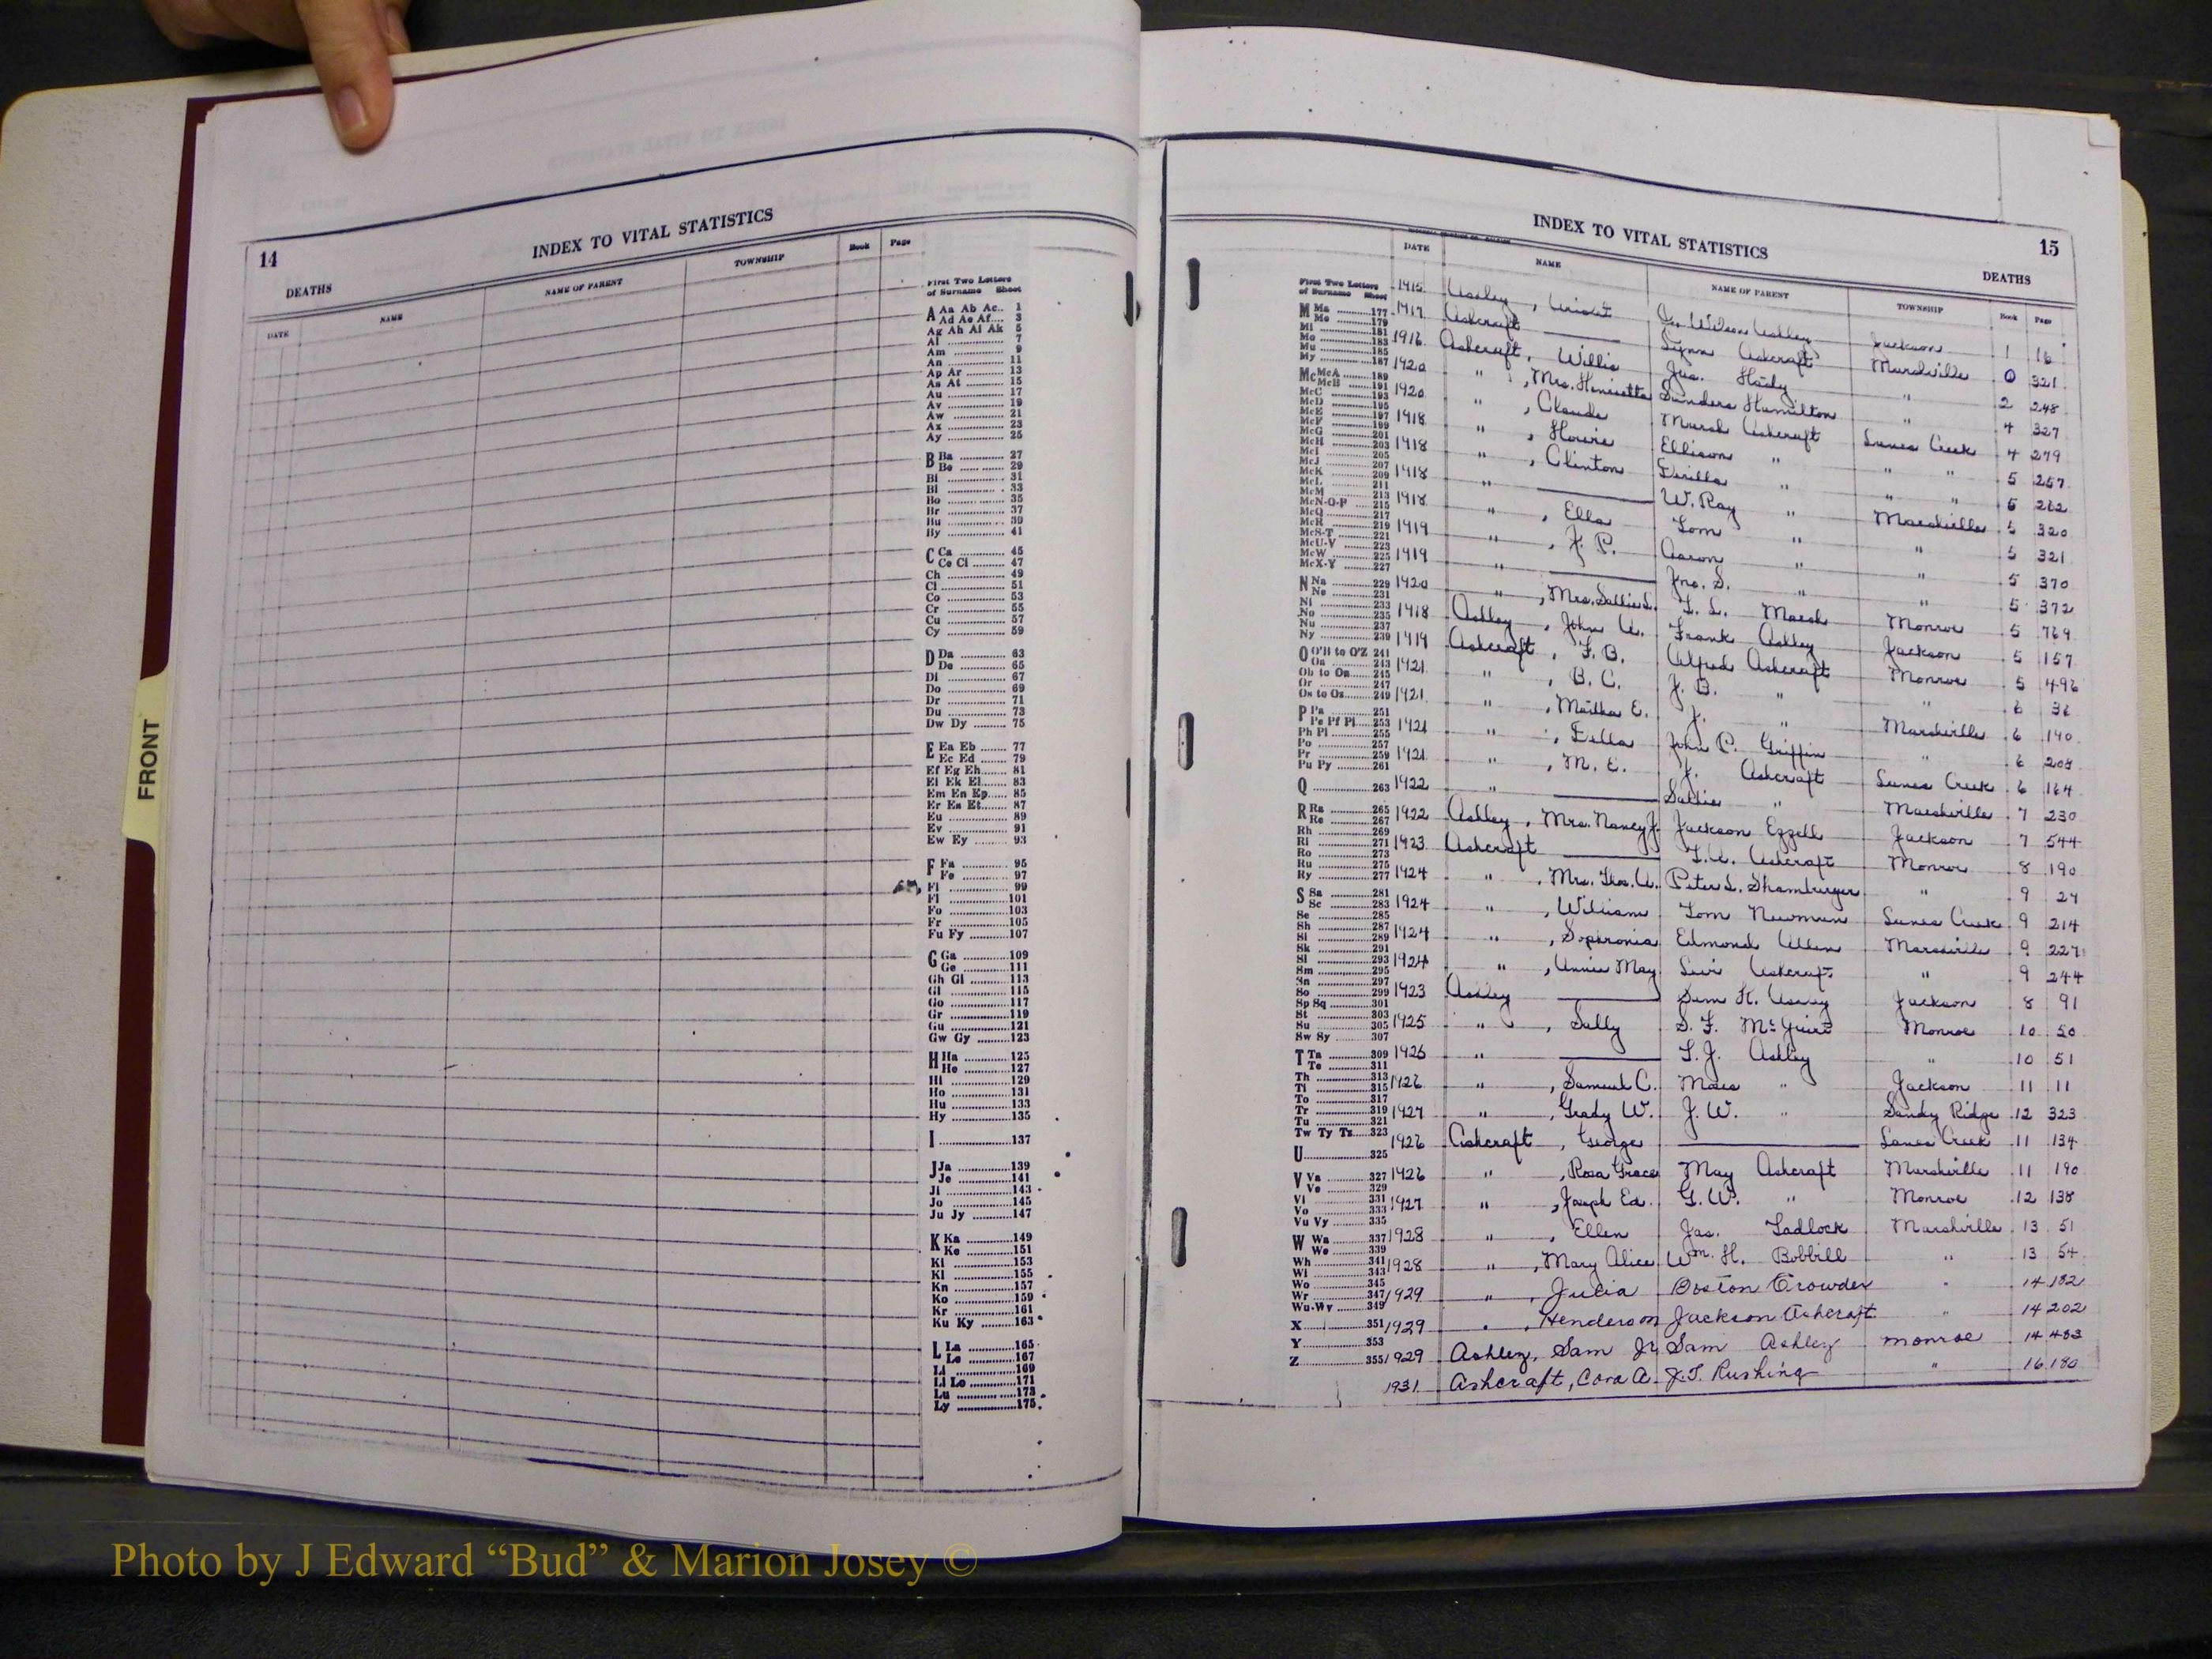 14
INDEX TO VITAL STATISTICS
DEATHS
DATE NAME NAME OF PARENT TOWNSHIP Book Page
First Two Letters
of Surname Sheet
A Aa Ab Ac.. 1
Ad Ae Af.... 3
Ag Ah Ai Ak 5
Al ............... 7
Am ............. 9
An .............. 11
Ap Ar ......... 13
As At .......... 15
Au .............. 17
Av .............. 19
Aw ............. 21
Ax .............. 23
Ay .............. 25
B Ba ............ 27
Be ............ 29
Bi .............. 31
Bl .............. 33
Bo .............. 35
Br .............. 37
Bu .............. 39
By .............. 41
C Ca ............ 45
Ce Ci ........ 47
Ch .............. 49
Cl ............... 51
Co .............. 53
Cr .............. 55
Cu .............. 57
Cy .............. 59
D Da ............ 63
De ............ 65
Di ............... 67
Do .............. 69
Dr .............. 71
Du .............. 73
Dw Dy ........ 75
E Ea Eb ....... 77
Ec Ed ....... 79
Ef Eg Eh...... 81
Ei Ek El....... 83
Em En Ep..... 85
Er Es Et....... 87
Eu .............. 89
Ev .............. 91
Ew Ey ........ 93
F Fa ............ 95
Fe ............ 97
Fi ............... 99
Fl ...............101
Fo ..............103
Fr ..............105
Fu Fy .........107
G Ga ............109
Ge ............111
Gh Gi .........113
Gl ..............115
Go ..............117
Gr ..............119
Gu ..............121
Gw Gy ........123
H Ha ............125
He ............127
Hi ..............129
Ho ..............131
Hu ..............133
Hy ..............135
I ...................137
J Ja .............139
Je .............141
Ji ...............143
Jo ..............145
Ju Jy .........147
K Ka ............149
Ke ............151
Ki ..............153
Kl ..............155
Kn ..............157
Ko ..............159
Kr ..............161
Ku Ky ........163
L La ............165
Le ............167
Li ..............169
Ll Lo ..........171
Lu ..............173
Ly ..............175
FRONT
INDEX TO VITAL STATISTICS 15
DEATHS
DATE NAME NAME OF PARENT TOWNSHIP Book Page
First Two Letters
of Surname Sheet
M Ma ..........177
Me ..........179
Mi ............181
Mo ............183
Mu ............185
My ............187
Mc McA ........189
McB ........191
McC ..........193
McD ..........195
McE ..........197
McF ..........199
McG ..........201
McH ..........203
McI ...........205
McJ ...........207
McK ..........209
McL ..........211
McM ..........213
McN-O-P ....215
McQ ..........217
McR ..........219
McS-T ........221
McU-V .......223
McW ..........225
McX-Y .......227
N Na ...........229
Ne ...........231
Ni .............233
No ............235
Nu ............237
Ny ............239
O O'B to O'Z 241
Oa ............243
Ob to On......245
Or .............247
Os to Oz......249
P Pa ............251
Pe Pf Pi.....253
Ph Pl .........255
Po .............257
Pr .............259
Pu Py .........261
Q .................263
R Ra ............265
Re ............267
Rh .............269
Ri ..............271
Ro .............273
Ru .............275
Ry .............277
S Sa ............281
Sc ............283
Se .............285
Sh .............287
Si ..............289
Sk .............291
Sl ..............293
Sm ............295
Sn .............297
So .............299
Sp Sq .........301
St ..............303
Su .............305
Sw Sy ........307
T Ta ............309
Te ............311
Th .............313
Ti ..............315
To .............317
Tr ..............319
Tu .............321
Tw Ty Tz.....323
U .................325
V Va ............327
Ve ............329
Vi ..............331
Vo .............333
Vu Vy ........335
W Wa ..........337
We ..........339
Wh ............341
Wi .............343
Wo ............345
Wr ............347
Wu-Wy .......349
X .................351
Y .................353
Z .................355
1915 Ashley, J. Wilson Ashley Jackson 1 16
1917 Ashcraft Lynn Ashcraft Marshville 0 321
1916 Ashcraft, Willis Jas. Hady " 2 248
1920 " , Mrs. Henrietta Sanders Hamilton " 4 327
1920 " , Claude Marsh Ashcraft Lanes Creek 4 279
1918 " , Howie Ellison " " " 5 257
1918 " , Clinton " " " 5 262
1918 " W. Ray " Marshville 5 320
1918 " , Ella Tom " " 5 321
1919 " , J. P. Aaron " " 5 370
1919 " Jno. S. " " 5 372
1920 " , Mrs. Sallie L. Marsh Monroe 5 769
1918 Ashley, John A. Frank Ashley Jackson 5 157
1919 Ashcraft, F. B. Alfred Ashcraft Monroe 5 496
1921 " , B. C. J. B. " " 6 36
1921 " , Martha E. J. " Marshville 6 140
1921 " , Della John P. Griffin " 6 208
1921 " , M. E. J. Ashcraft Lanes Creek 6 164
1922 " Sallie " Marshville 7 230
1922 Ashley, Mrs. Nancy J. Jackson Ezzell Jackson 7 544
1923 Ashcraft Ashcraft Monroe 8 190
1924 " , Mrs. Geo. A. Peter L. Shamburger " 9 27
1924 " , William Tom Newman Lanes Creek 9 214
1924 " , Sophronia Edmond Allen Marshville 9 227
1924 " , Annie May Levi Ashcraft " 9 244
1923 Ashley Sam H. Jackson 8 91
1925 " , Sally S. F. McGuirt Monroe 10 50
1925 " L. J. Ashley " 10 51
1926 " , Samuel C. " Jackson 11 11
1927 " , Grady W. J. W. " Sandy Ridge 12 323
1926 Ashcraft, George Lanes Creek 11 134
1926 " , Rosa Grace May Ashcraft Marshville 11 190
1927 " , Joseph Ed. G. W. " Monroe 12 138
1928 " , Ellen Jas. Tadlock Marshville 13 51
1928 " , Mary Alice Wm. H. " 13 54
1929 " , Julia Boston Crowder " 14 182
1929 " , Henderson Jackson Ashcraft " 14 202
1929 Ashley, Sam Jr. Sam Ashley Monroe 14 483
1931 Ashcraft, Cora A. J. T. Rushing " 16 180
Photo by J Edward “Bud” & Marion Josey ©